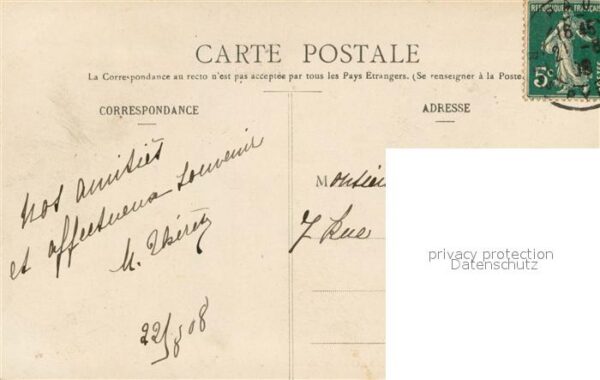 CARTE POSTALE
La Correspondance au recto n'est pas acceptée par tous les Pays Etrangers. (Se renseigner à la Poste
CORRESPONDANCE
ADRESSE
REPUBLIQUE FRANÇAISE
5c
Nos amitiés
et affectueux souvenir
M.
22/8 08
Monsieu
7 Rue
privacy protection
Datenschutz